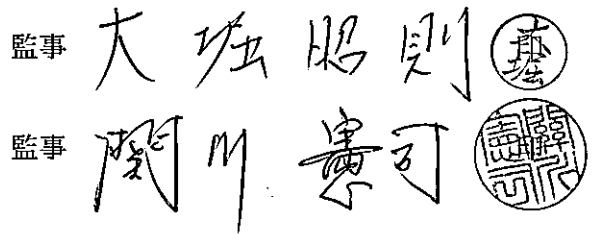 監事 大堀昭則
監事 関川憲司